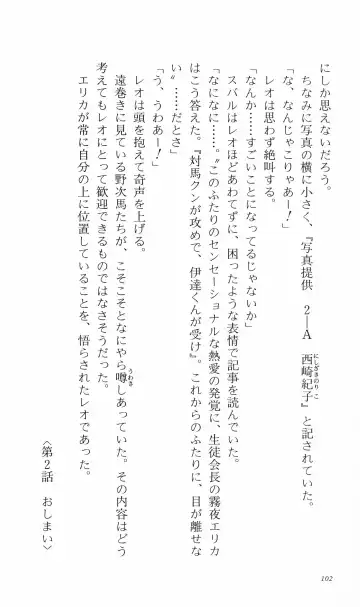 にしか思えないだろう。
ちなみに写真の横に小さく、『写真提供　2―A　西崎紀子』と記されていた。
にしざきのりこ
「な、なんじゃこりゃあー！」
レオは思わず絶叫する。
「なんか……すごいことになってるじゃないか」
スバルはレオほどあわてずに、困ったような表情で記事を読んでいた。
「なになに……。〝このふたりのセンセーショナルな熱愛の発覚に、生徒会長の霧夜エリカ
はこう答えた。『対馬クンが攻めで、伊達くんが受け』。これからのふたりに、目が離せな
い〟……だとさ」
「う、うわあー！」
レオは頭を抱えて奇声を上げる。
遠巻きに見ている野次馬たちが、こそこそとなにやら噂しあっていた。その内容はどう
うわさ
考えてもレオにとって歓迎できるものではなさそうだった。
エリカが常に自分の上に位置していることを、悟らされたレオであった。
〈第2話　おしまい〉
102